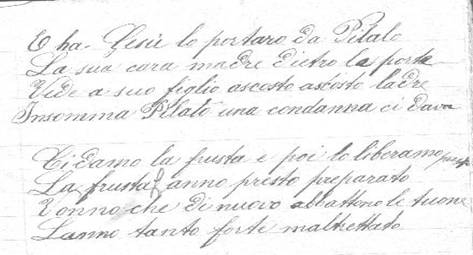 E ha. Gesù lo portaro da Pilato
La sua cara madre dietro la porta
Vede a suo figlio ascosto ascosto ladre
Insomma Pilato una condanna ci dava
Ci damo la frusta e poi lo liberamo
La frusta fanno presto preparato
Vonno che di nuovo
Lanno tanto forte maltrettato